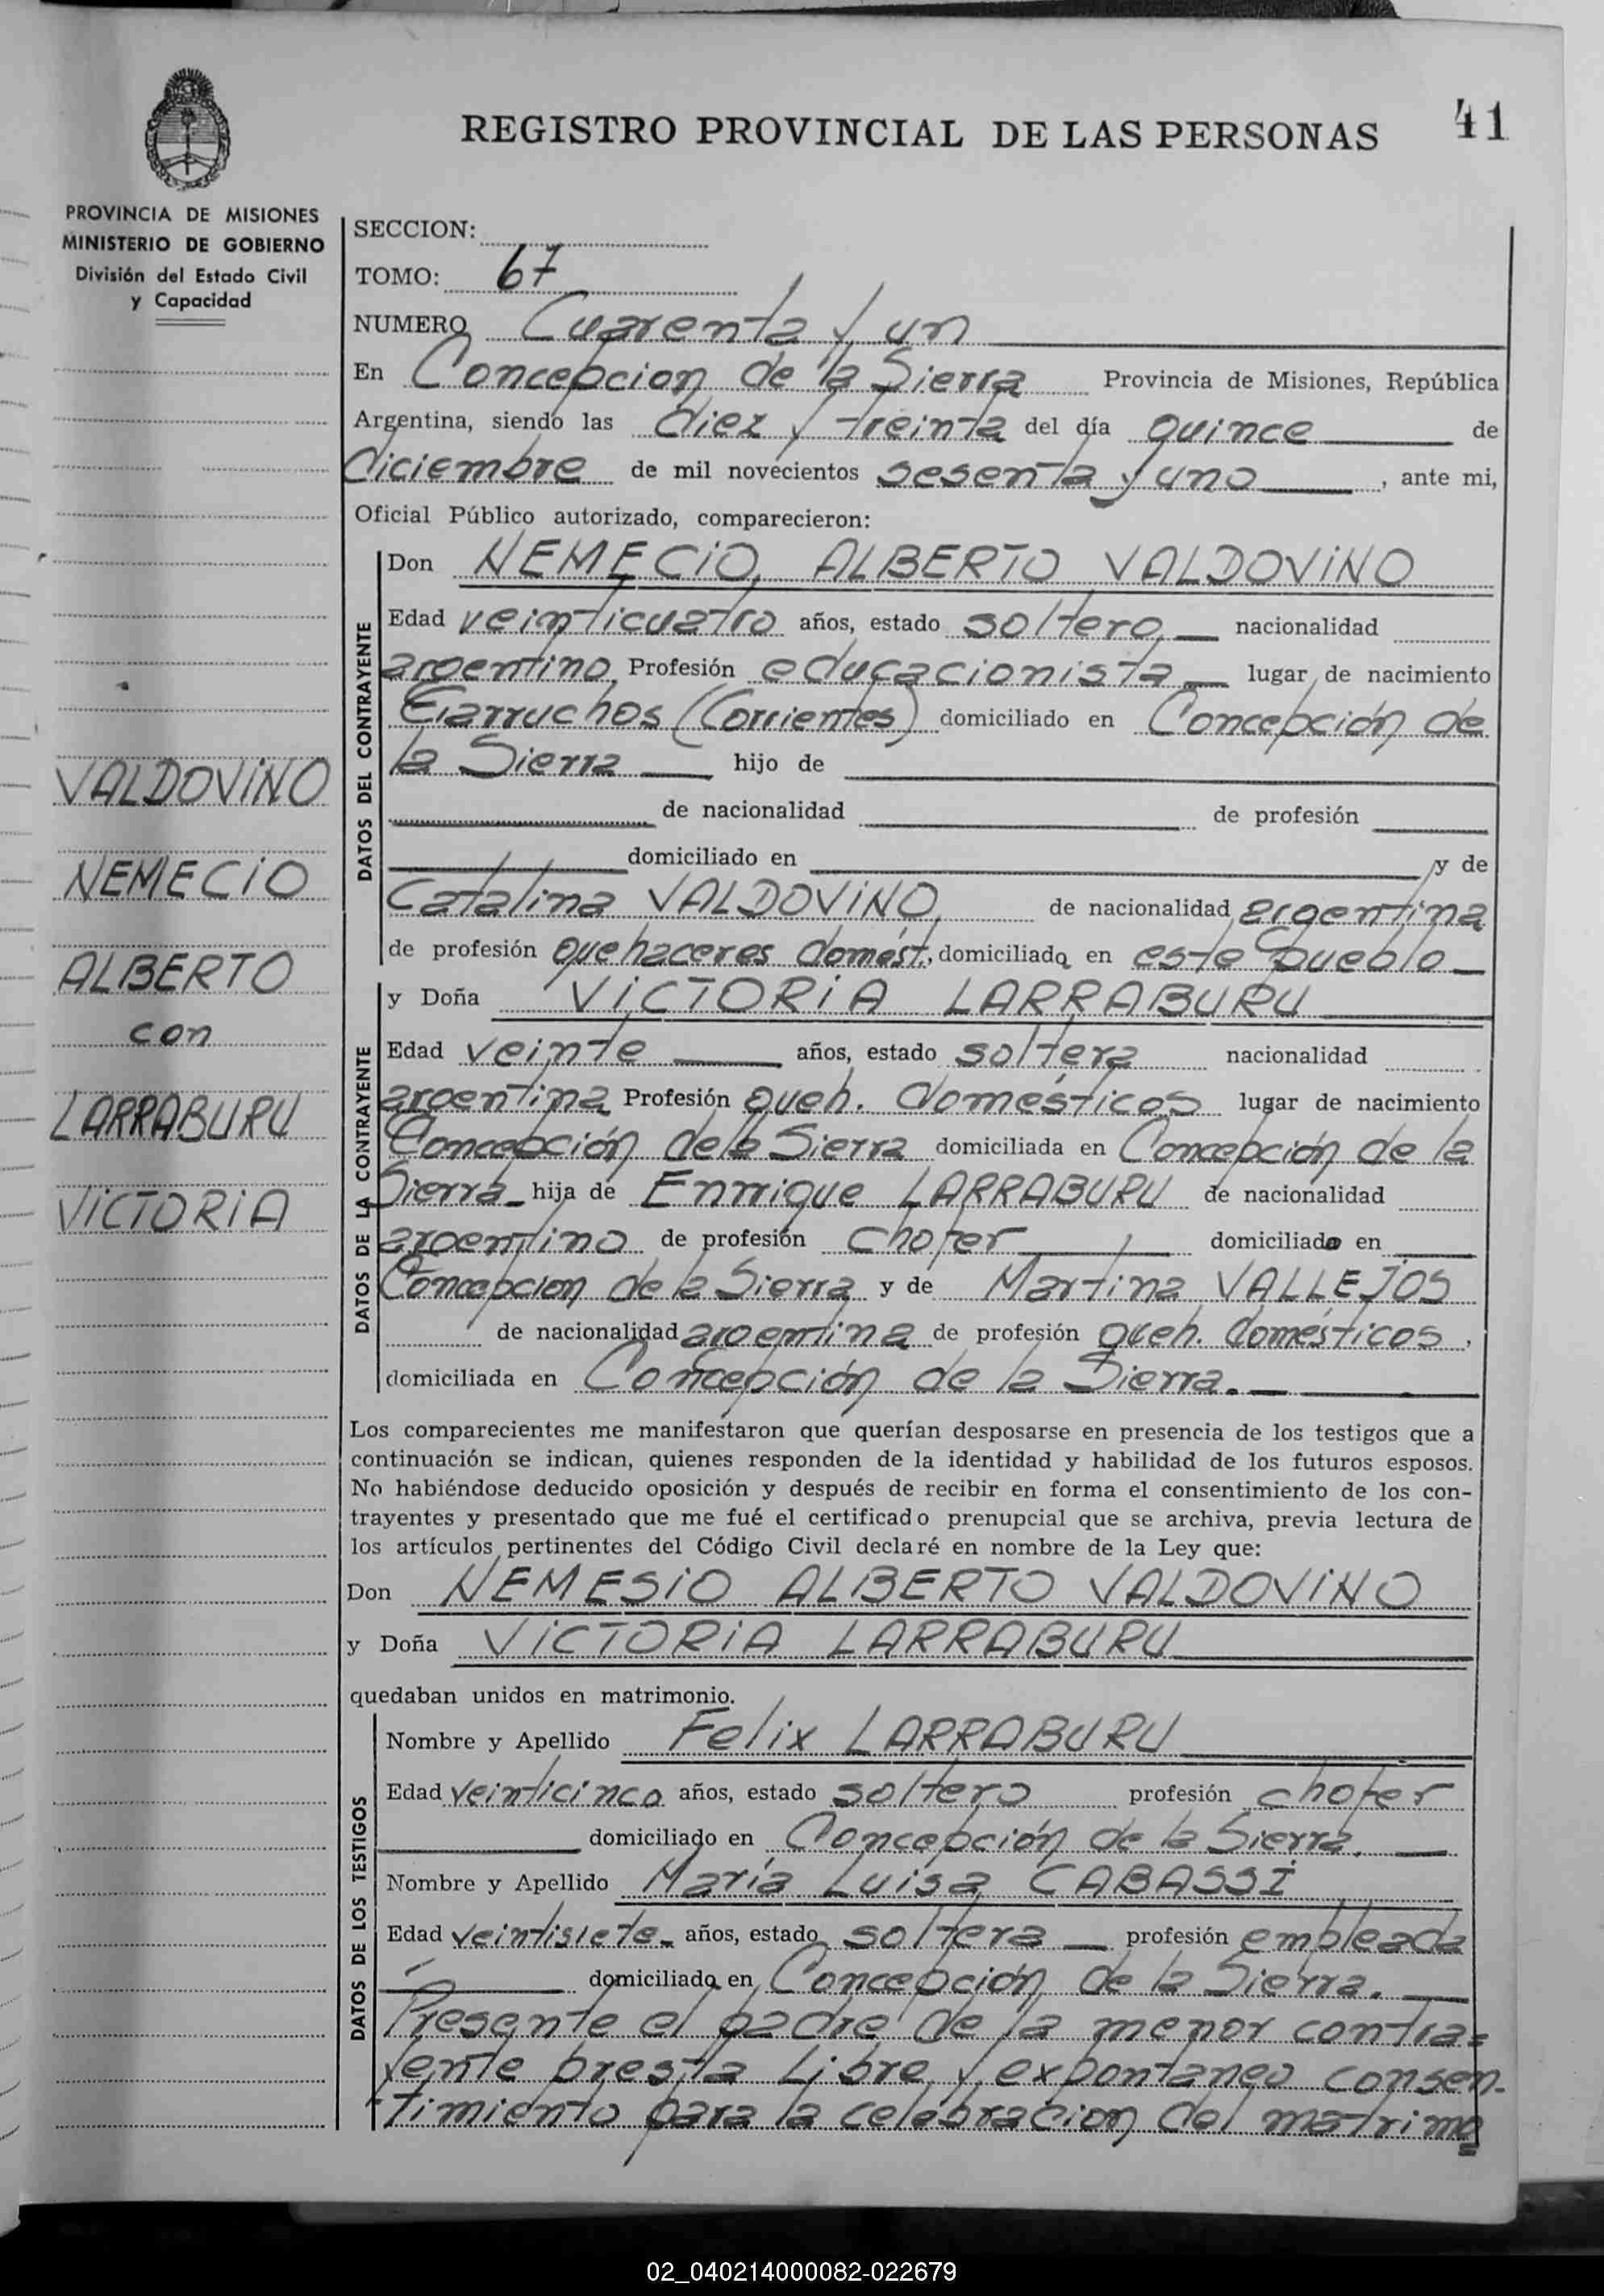 41
REGISTRO PROVINCIAL DE LAS PERSONAS
PROVINCIA DE MISIONES
MINISTERIO DE GOBIERNO
División del Estado Civil
y Capacidad
SECCION:
TOMO: 67
NUMERO Cuarenta y un
En Concepcion de la Sierra Provincia de Misiones, República
Argentina, siendo las diez y treinta del día quince de
diciembre de mil novecientos sesenta y uno, ante mi,
Oficial Público autorizado, comparecieron:
DATOS DEL CONTRAYENTE
Don NEMECIO, ALBERTO VALDOVINO
Edad veinticuatro años, estado soltero, nacionalidad
argentino, Profesión educacionista lugar de nacimiento
Garruchos (Corrientes) domiciliado en Concepción de
la Sierra hijo de
de nacionalidad de profesión
domiciliado en y de
Catalina VALDOVINO, de nacionalidad argentina
de profesión quehaceres domést., domiciliada en este Pueblo
DATOS DE LA CONTRAYENTE
y Doña VICTORIA LARRABURU
Edad veinte años, estado soltera nacionalidad
argentina Profesión queh. domésticos lugar de nacimiento
Concepción de la Sierra domiciliada en Concepción de la
Sierra hija de Enrrique LARRABURU de nacionalidad
argentino de profesión chofer domiciliado en
Concepcion de la Sierra y de Martina VALLEJOS
de nacionalidad argentina de profesión queh. domésticos,
domiciliada en Concepción de la Sierra.
VALDOVINO
NEMECIO
ALBERTO
con
LARRABURU
VICTORIA
Los comparecientes me manifestaron que querían desposarse en presencia de los testigos que a
continuación se indican, quienes responden de la identidad y habilidad de los futuros esposos.
No habiéndose deducido oposición y después de recibir en forma el consentimiento de los con-
trayentes y presentado que me fué el certificado prenupcial que se archiva, previa lectura de
los artículos pertinentes del Código Civil declaré en nombre de la Ley que:
Don NEMESIO ALBERTO VALDOVINO
y Doña VICTORIA LARRABURU
quedaban unidos en matrimonio.
DATOS DE LOS TESTIGOS
Nombre y Apellido Felix LARRABURU
Edad veinticinco años, estado soltero profesión chofer
domiciliado en Concepción de la Sierra.
Nombre y Apellido María Luisa CABASSI
Edad veintisiete años, estado soltera profesión empleada
domiciliada en Concepción de la Sierra.
Presente el padre de la menor contra=
yente presta libre y expontaneo consen-
timiento para la celebracion del matrimo=
02_040214000082-022679